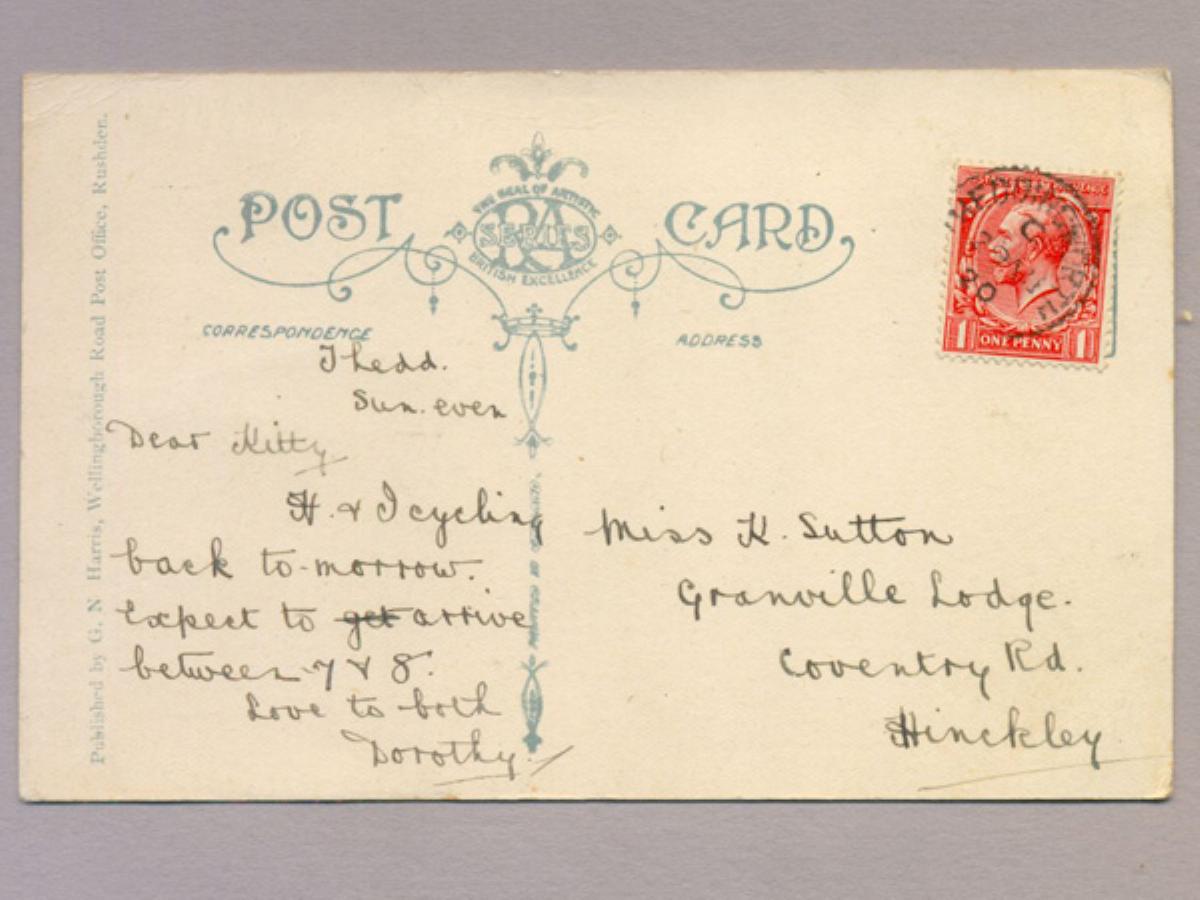 POST CARD
THE SEAL OF ARTISTIC
RA
SERIES
BRITISH EXCELLENCE
CORRESPONDENCE
ADDRESS
Thedd.
Sun. even
Dear Kitty
H. & I cycling
back to-morrow.
Expect to get arrive
between 7 & 8.
Love to both
Dorothy.
Miss K. Sutton
Granville Lodge.
Coventry Rd.
Hinckley
Published by G. N Harris, Wellingborough Road Post Office, Rushden.
20
1 ONE PENNY 1